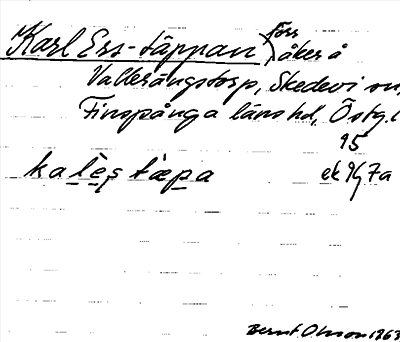 Karl Ers-täppan förr åker å
Vallerängstorp, Skedevi sn,
Finspånga läns hd, Östg.l
95
kalèstæpa ek 9G7a
Bernt Olsson 1963